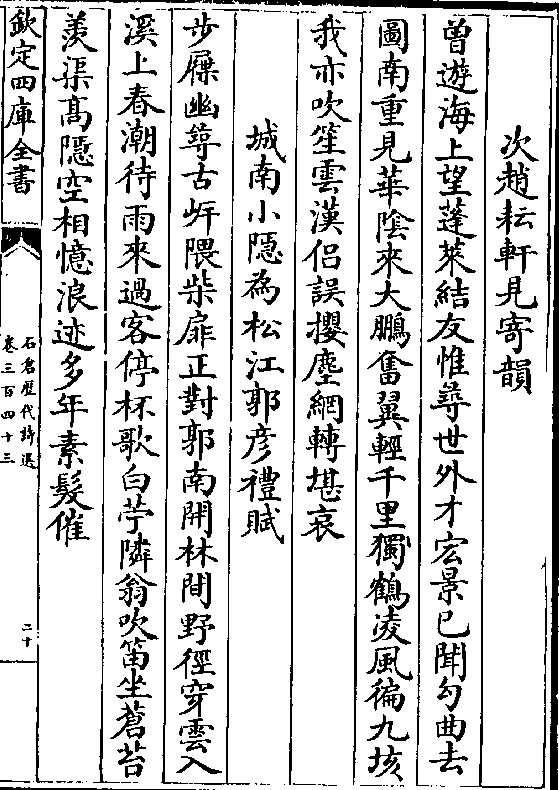 次趙耘軒見寄韻
曾遊海上望蓬萊結友惟尋世外才宏景已聞勾曲去
圖南重見華陰來大鵬奮翼輕千里獨鶴凌風徧九垓
我亦吹笙雲漢侶誤攖塵網轉堪哀
城南小隱為松江郭彦禮賦
步屧幽尋古岸隈柴扉正對郭南開林間野徑穿雲入
溪上春潮待雨來過客停杯歌白苧隣翁吹笛坐蒼苔
羨渠髙隱空相憶浪迹多年素髮催
欽定四庫全書
石倉歴代詩選
卷三百四十三
二十